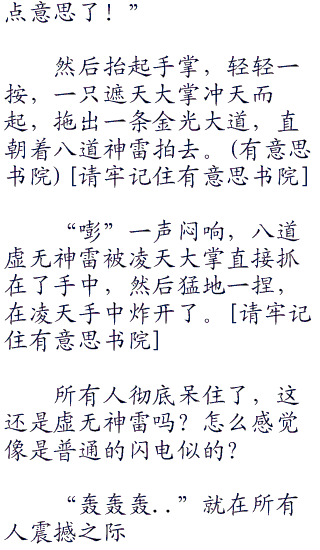 点意思了！”
然后抬起手掌，轻轻一
按，一只遮天大掌冲天而
起，拖出一条金光大道，直
朝着八道神雷拍去。(有意思
书院) [请牢记住有意思书院]
“嘭”一声闷响，八道
虚无神雷被凌天大掌直接抓
在了手中，然后猛地一捏，
在凌天手中炸开了。[请牢记
住有意思书院]
所有人彻底呆住了，这
还是虚无神雷吗？怎么感觉
像是普通的闪电似的？
“轰轰轰..”就在所有
人震撼之际